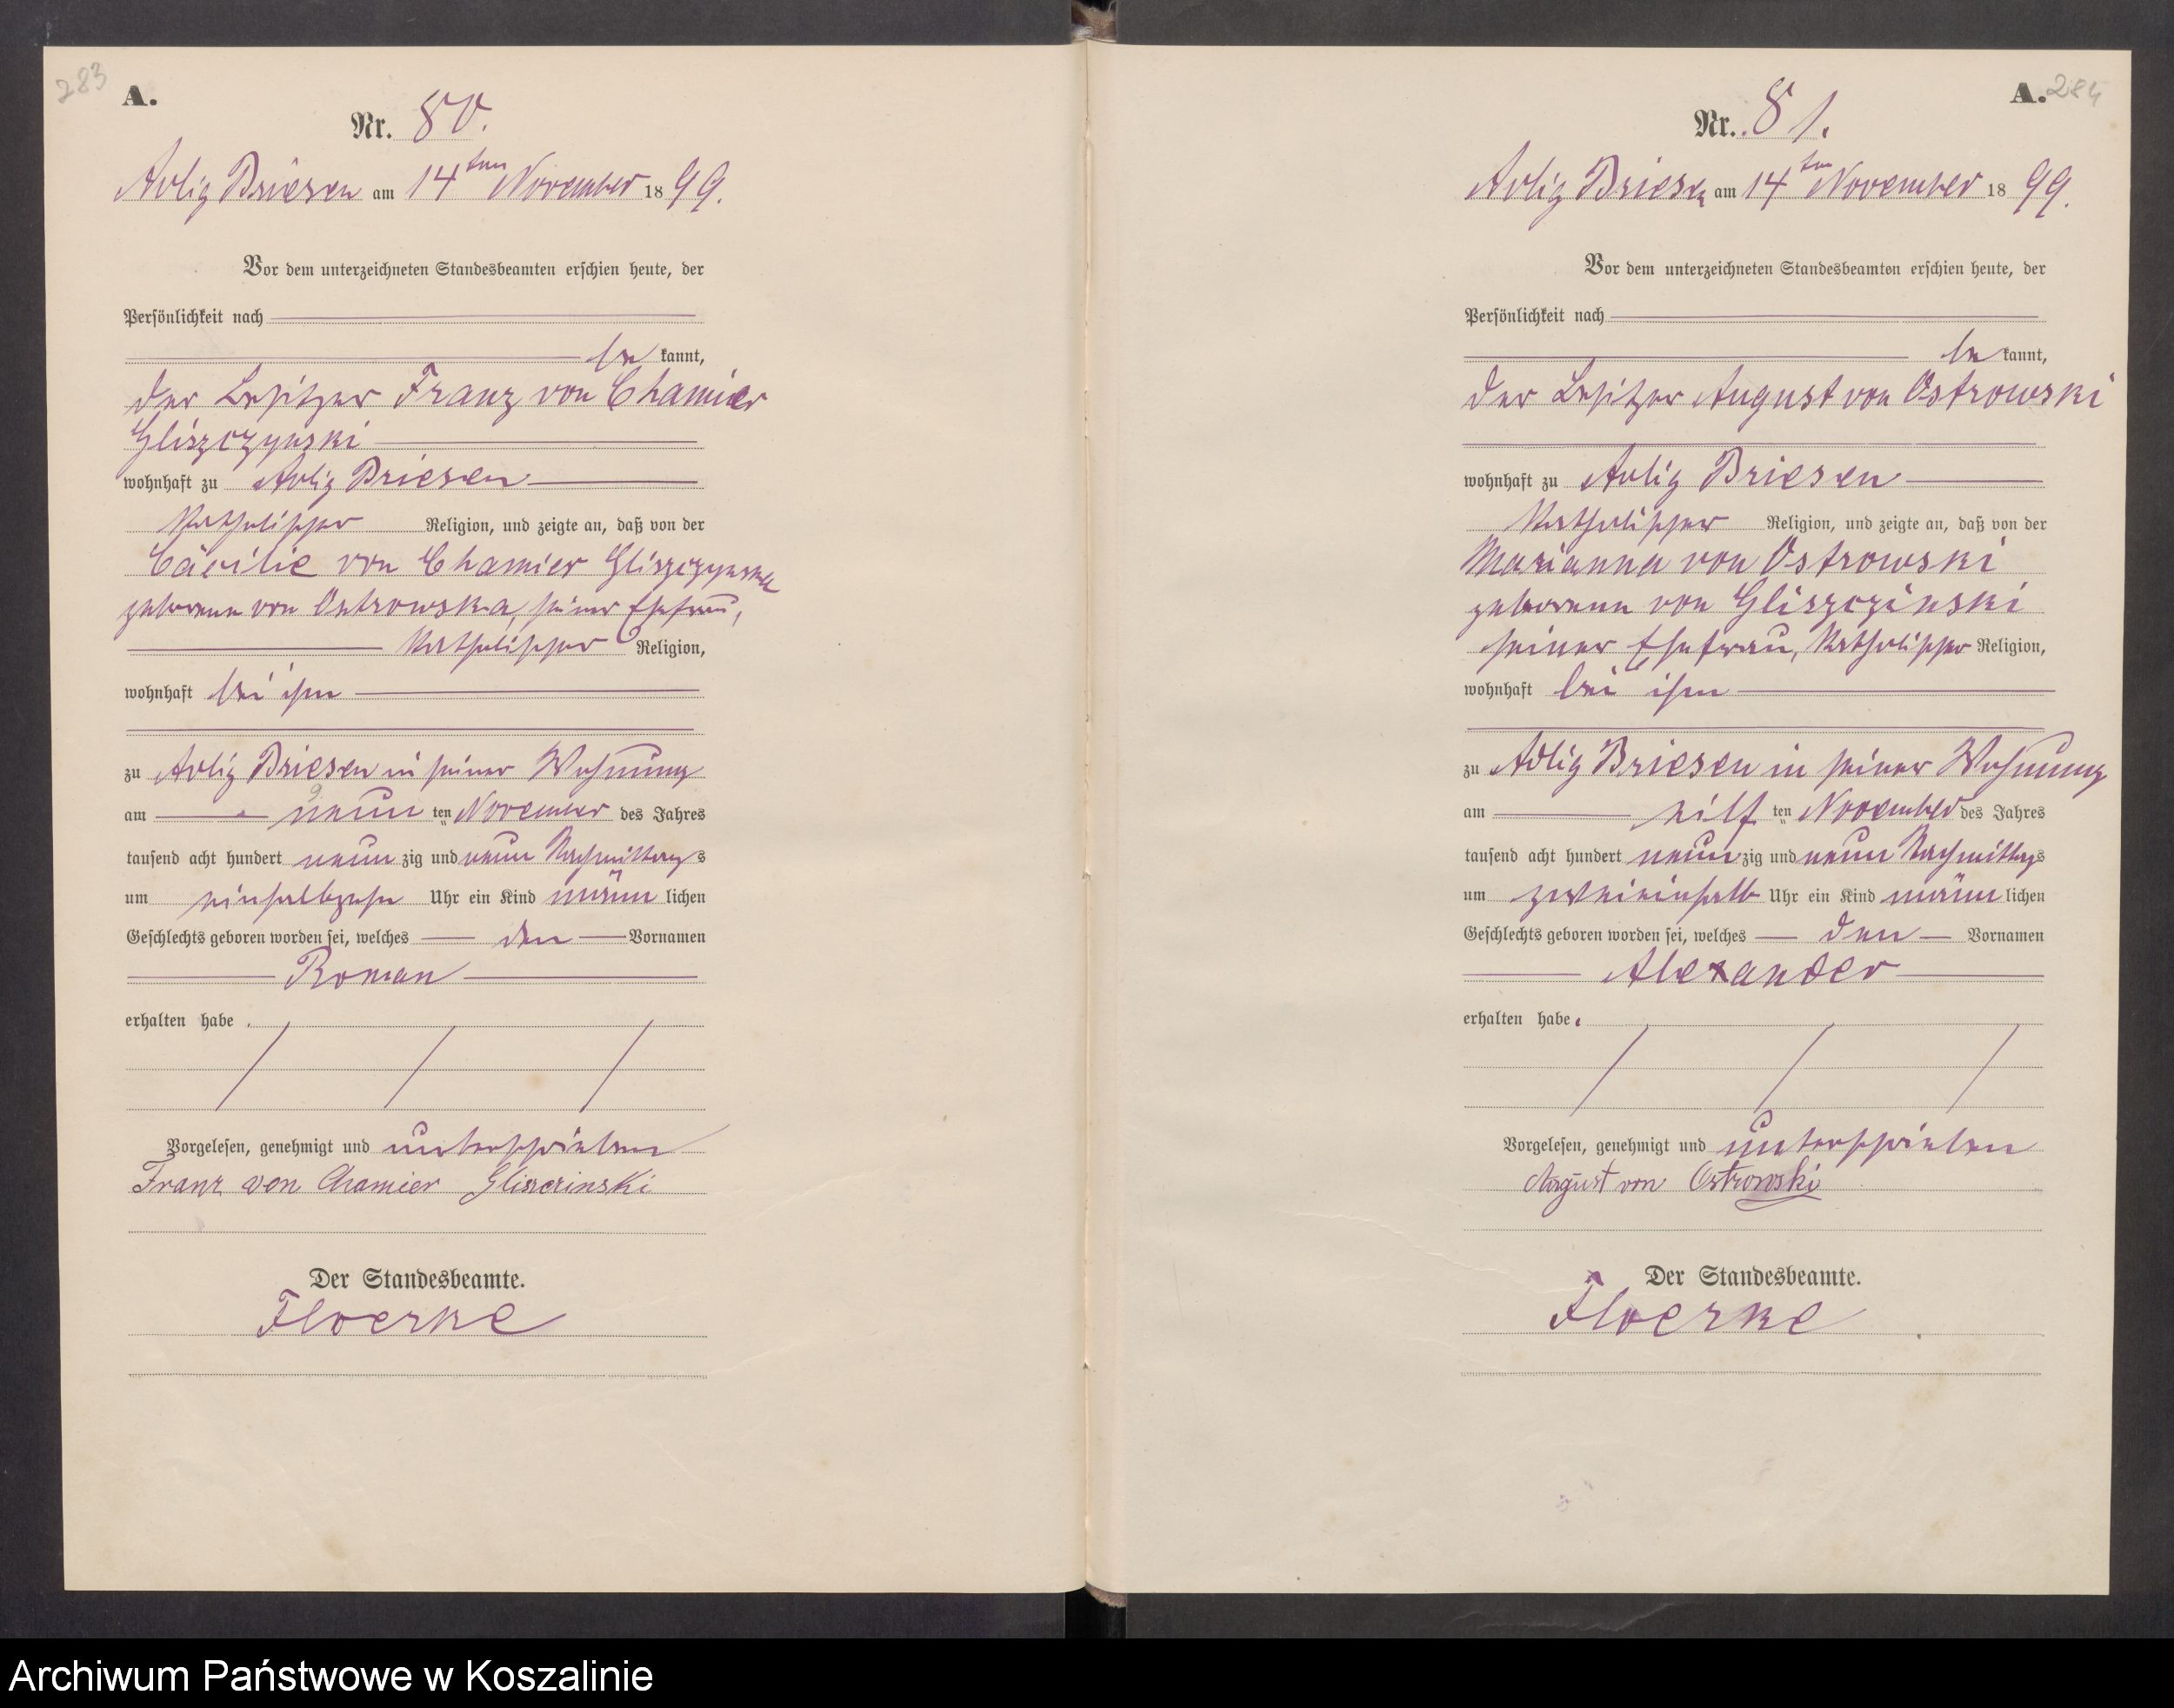 283
A.
Nr. 80.
Adlig Briesen am 14ten November 1899.
Vor dem unterzeichneten Standesbeamten erschien heute, der
Persönlichkeit nach
be kannt,
der Besitzer Franz von Chamier
Gliszczynski
wohnhaft zu Adlig Briesen
katholischer Religion, und zeigte an, daß von der
Cäcilie von Chamier Gliszczynska
geborene von Ostrowska, seiner Ehefrau,
katholischer Religion,
wohnhaft bei ihm
zu Adlig Briesen in seiner Wohnung
am neun ten November des Jahres
tausend acht hundert neun zig und neun Nachmittags
um einhalbzehn Uhr ein Kind männ lichen
Geschlechts geboren worden sei, welches den Vornamen
Roman
erhalten habe.
Vorgelesen, genehmigt und unterschrieben
Franz von Chamier Gliszczinski
Der Standesbeamte.
Floerke
A. 284
Nr. 81.
Adlig Briesen am 14ten November 1899.
Vor dem unterzeichneten Standesbeamten erschien heute, der
Persönlichkeit nach
be kannt,
der Besitzer August von Ostrowski
wohnhaft zu Adlig Briesen
katholischer Religion, und zeigte an, daß von der
Marianna von Ostrowski
geborenen von Gliszczinski
seiner Ehefrau, katholischer Religion,
wohnhaft bei ihm
zu Adlig Briesen in seiner Wohnung
am eilf ten November des Jahres
tausend acht hundert neun zig und neun Nachmittags
um zweieinhalb Uhr ein Kind männ lichen
Geschlechts geboren worden sei, welches den Vornamen
Alexander
erhalten habe.
Vorgelesen, genehmigt und unterschrieben
August von Ostrowski
Der Standesbeamte.
Floerke
Archiwum Państwowe w Koszalinie